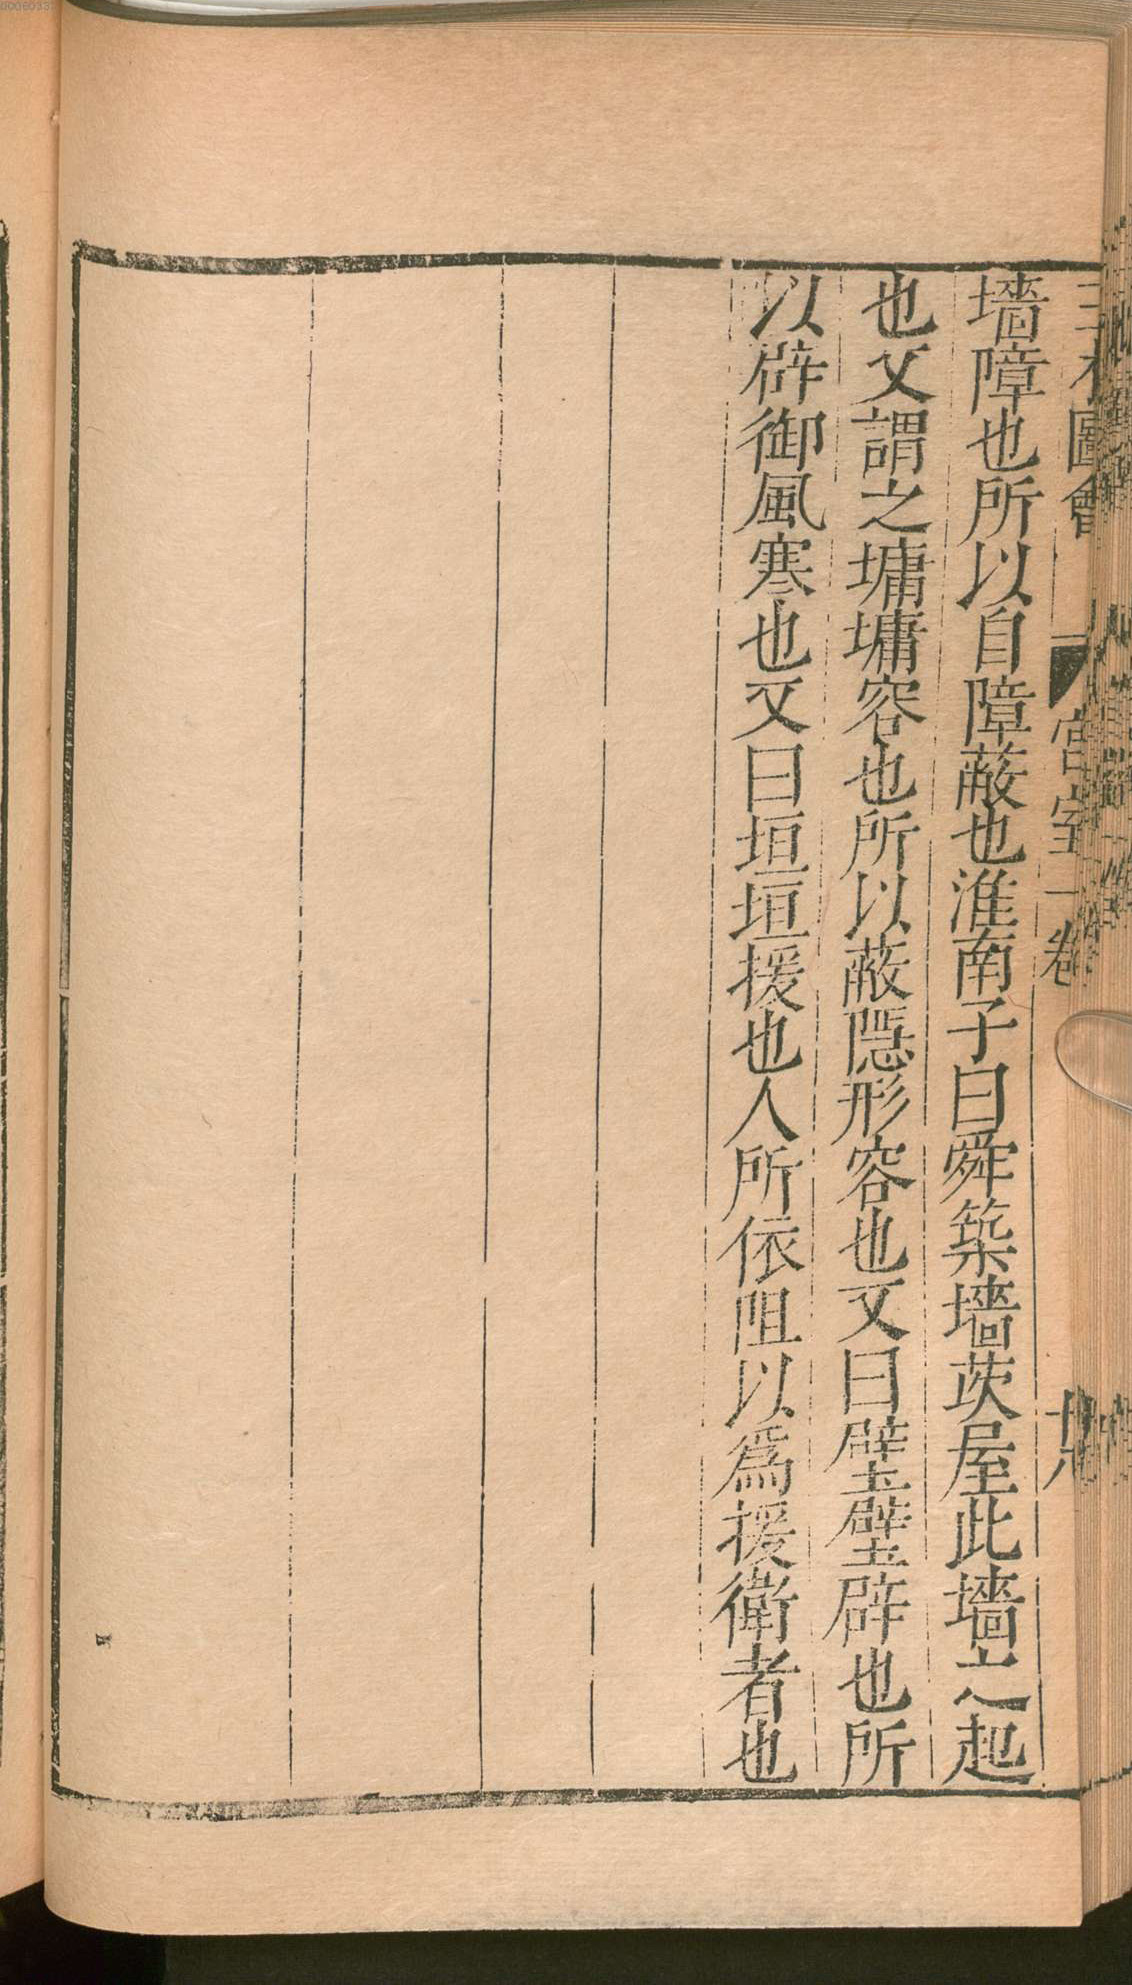 墻障也所以自障蔽也淮南子曰舜築墻茨屋此墻之起
也又謂之墉墉容也所以蔽隱形容也又曰壁壁辟也所
以辟御風寒也又曰垣垣援也人所依阻以爲援衛者也
圖會 宮室一卷